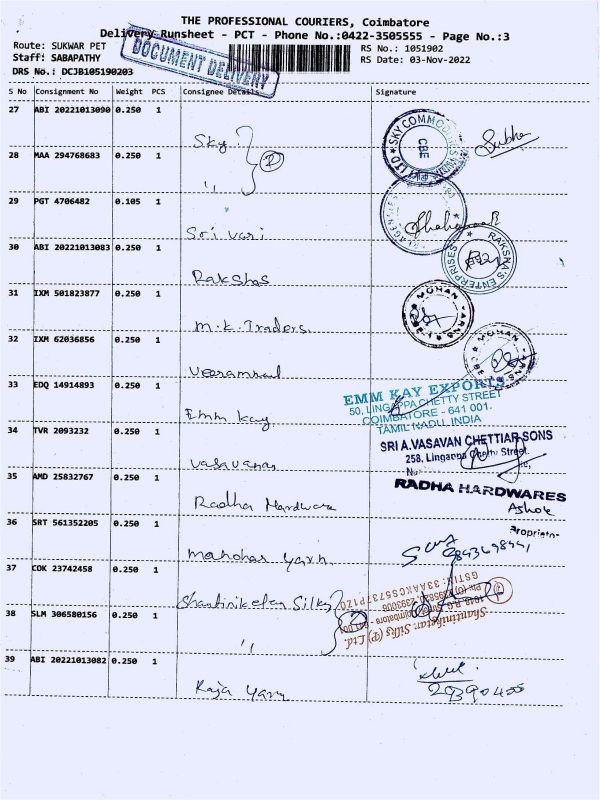 THE PROFESSIONAL COURIERS, Coimbatore
Delivery Runsheet - PCT - Phone No.:0422-3505555 - Page No.:3
Route: SUKWAR PET
RS No.: 1051902
Staff: SABAPATHY
RS Date: 03-Nov-2022
DRS No.: DCJB105190203
DOCUMENT DELIVERY
S No Consignment No Weight PCS Consignee Details Signature
27 ABI 20221013090 0.250 1 Sky
SKY COMMODITIES
LTD
CBE
Subha
28 MAA 294768683 0.250 1 "
2
29 PGT 4706482 0.105 1 Sri Vari
AGENCIES
30 ABI 20221013083 0.250 1 Rakshas
RAKSHA'S ENTERPRISES
31 IXM 501823877 0.250 1 M.K. Traders
MOHAN YARNS
32 IXM 62036856 0.250 1
MOHAN YARNS
33 EDQ 14914893 0.250 1 Emm Kay
EMM KAY EXPORTS
50, LINGAPPA CHETTY STREET
COIMBATORE - 641 001.
TAMIL NADU, INDIA
34 TVR 2093232 0.250 1 Vasavanas
SRI A.VASAVAN CHETTIAR SONS
258, Lingappa Chetty Street.
35 AMD 25832767 0.250 1 Radha Hardware
RADHA HARDWARES
Ashok
Proprietor
36 SRT 561352205 0.250 1 Manohar Yarn
9843698941
37 COK 23742458 0.250 1 Shantiniketan Silks
Shantiniketan Silks (P) Ltd.
GSTIN: 33AAKCS5737P1ZO
38 SLM 306580156 0.250 1 "
2
39 ABI 20221013082 0.250 1 Raja Yarn